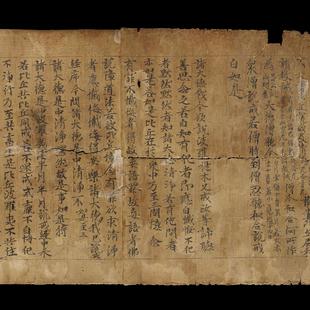 僧今和合何所作
大德僧聽今
眾僧說戒若僧時到僧忍聽和合說戒
白如是
諸大德我今欲說波羅提木叉戒汝等諦聽
善思念之若自知有犯者即應自懺悔不犯
者默然默然者知諸大德清淨若有他問者
亦如是答如是比丘在眾中乃至三問憶念
有罪不懺悔者得故妄語罪故妄語者佛
說障道法若彼比丘憶念有罪欲求清淨
者應懺悔懺悔得安樂諸大德我已說戒
經序今問諸大德是中清淨不如是至三
諸大德是中清淨默然故是事如是持
諸大德是四波羅夷法半月半月說戒經中來
若比丘共比丘同戒若不還戒戒羸不自悔犯
不淨行乃至共畜生是比丘波羅夷不共住